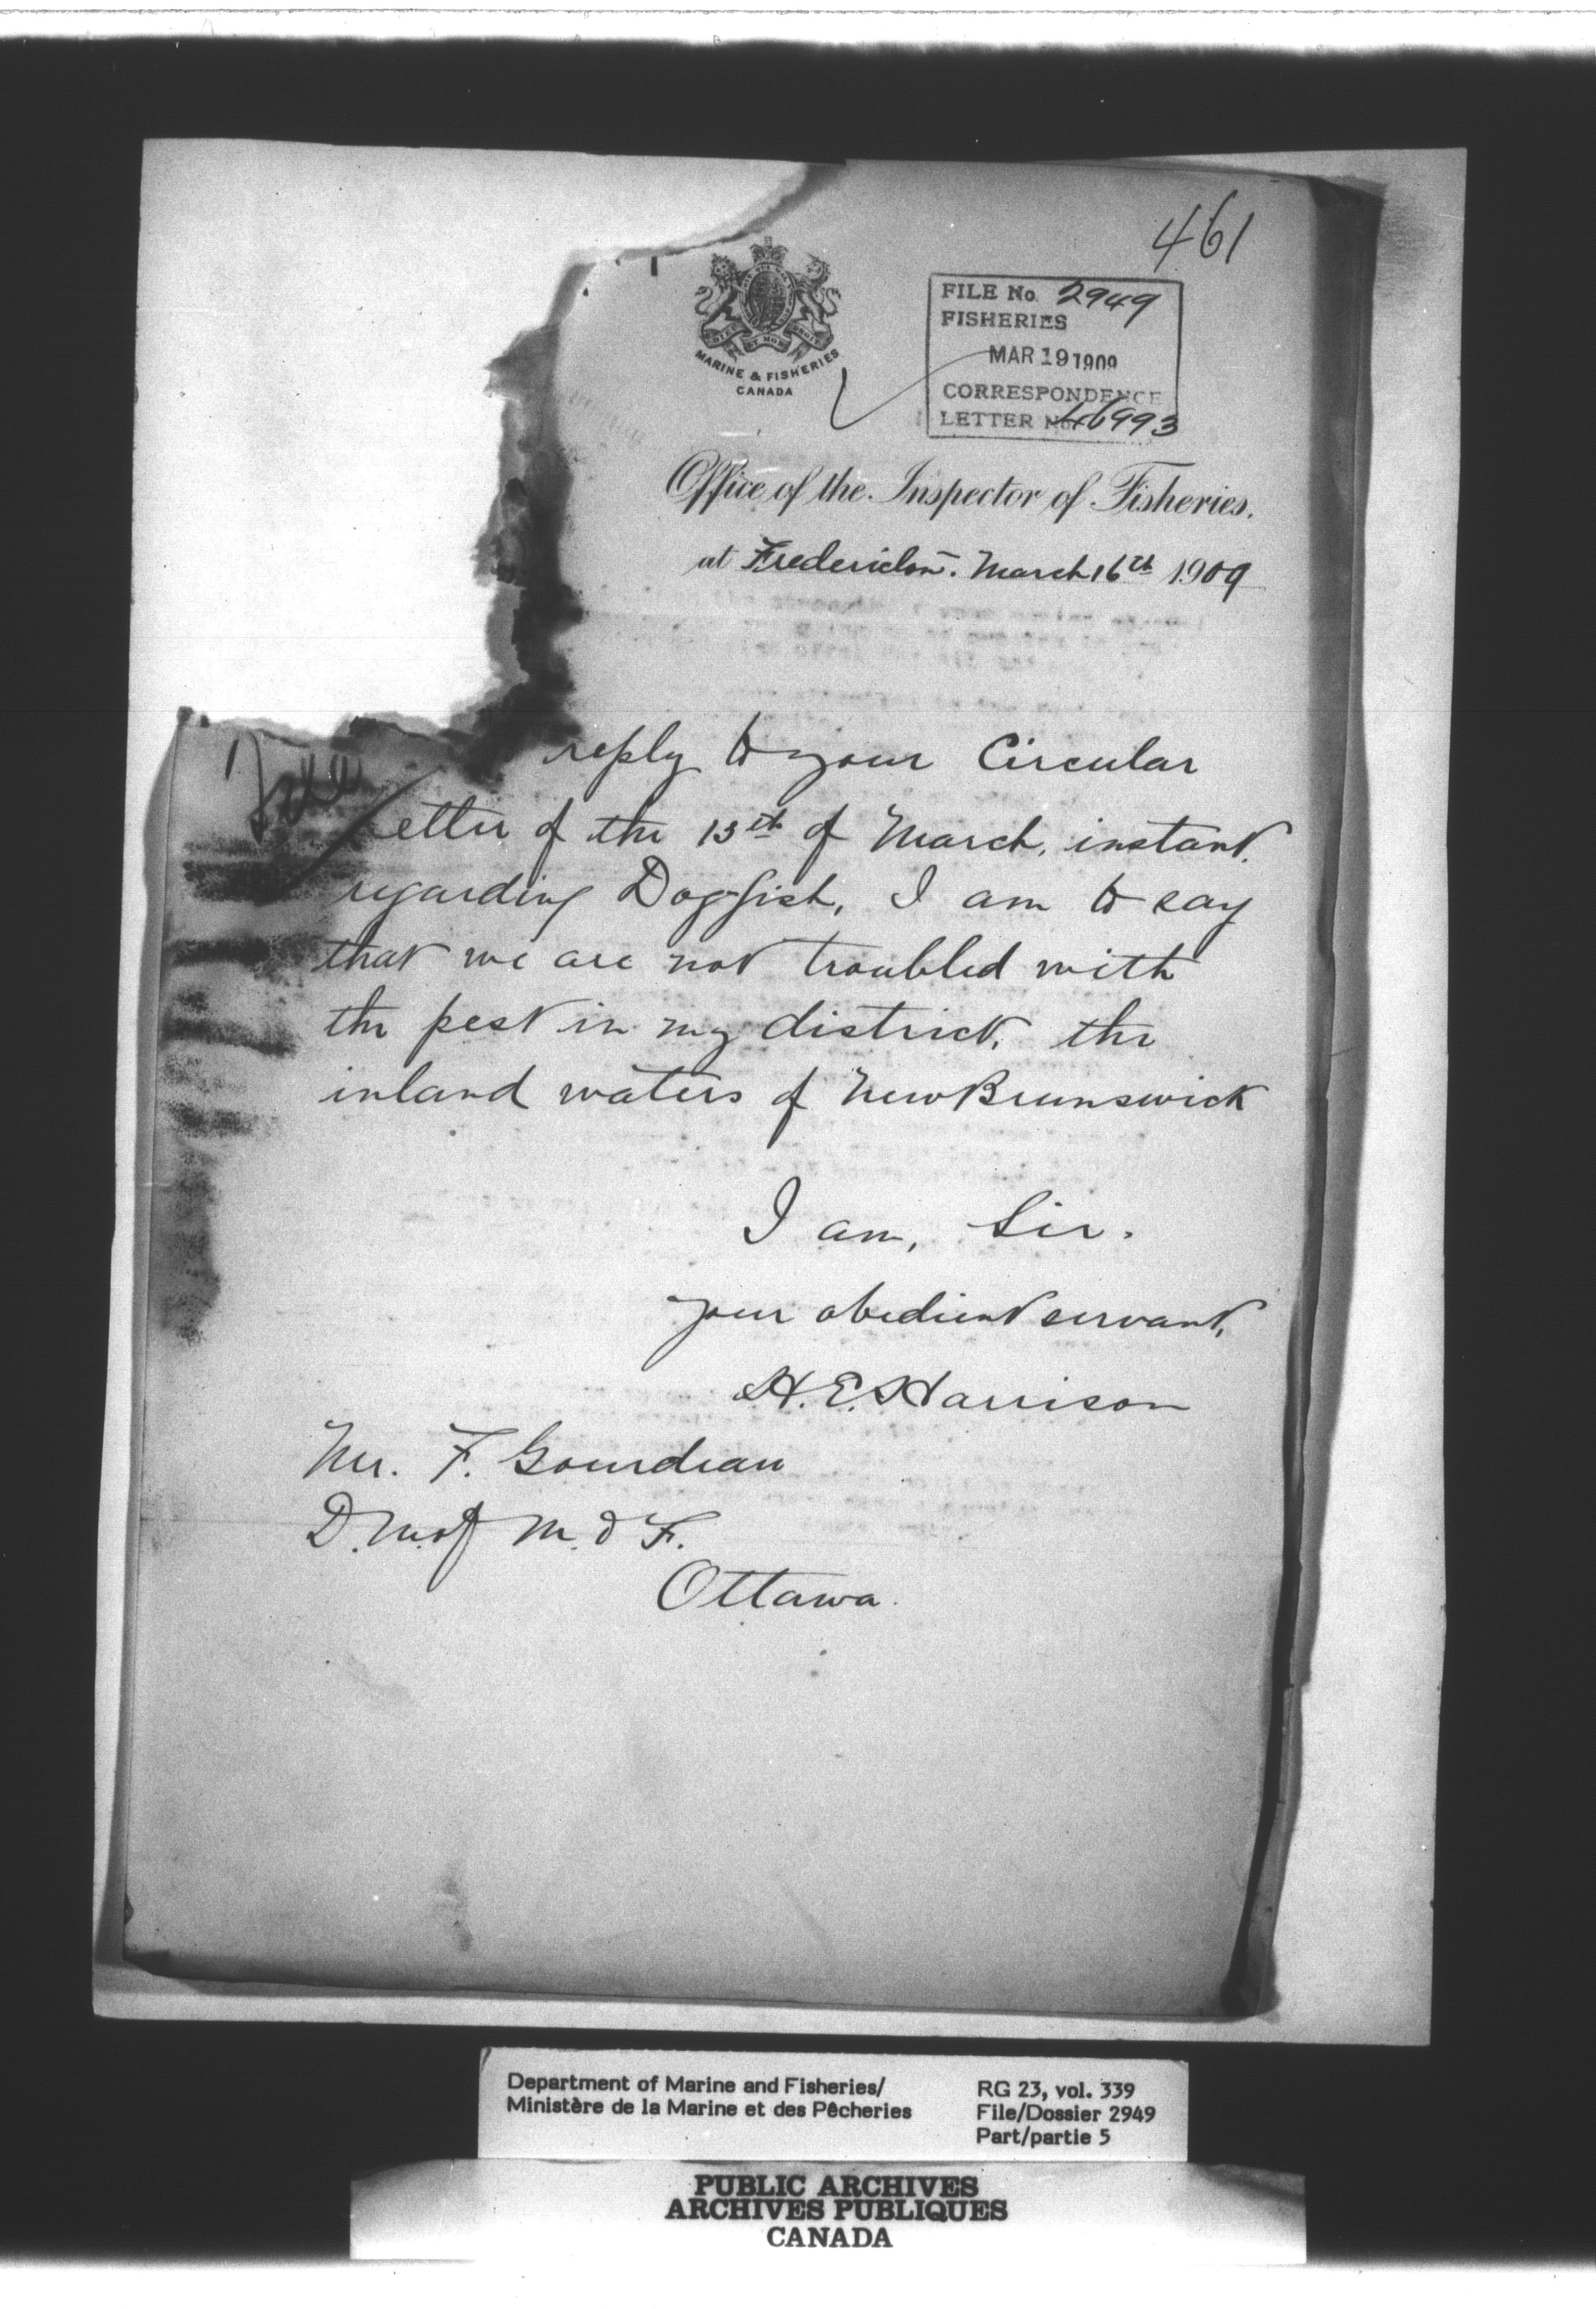 461
MARINE & FISHERIES
CANADA
FILE No. 2949
FISHERIES
MAR 19 1909
CORRESPONDENCE
LETTER No. 46993
Office of the Inspector of Fisheries.
at Fredericton. March 16th 1909
reply to your Circular
etter of the 13th of March, instant.
regarding Dogfish, I am to say
that we are not troubled with
the pest in my district, the
inland waters of New Brunswick
I am, Sir.
your obedient servant,
H. E. Harrison
Mr. F. Gourdeau
D. M. of M. & F.
Ottawa.
Department of Marine and Fisheries/
Ministère de la Marine et des Pêcheries
RG 23, vol. 339
File/Dossier 2949
Part/partie 5
PUBLIC ARCHIVES
ARCHIVES PUBLIQUES
CANADA